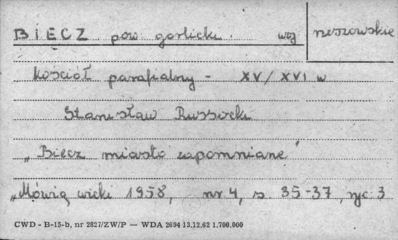 BIECZ pow gorlicki. woj rzeszowskie
kościół parafialny - XV/XVI w
Stanisław Russocki
"Biecz miasto zapomniane"
"Mówią wieki 1958, nr 4, s 35-37, ryc 3
CWD - B-15-b, nr 2827/ZW/P — WDA 2694 13.12.62 1.700.000